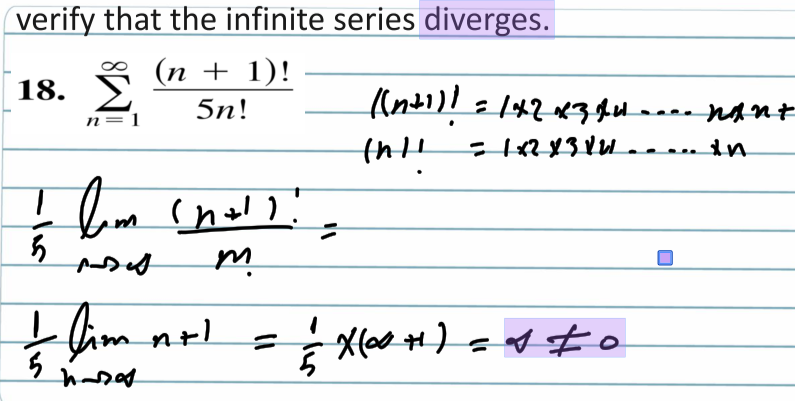 verify that the infinite series diverges.
18. ∞ ∑ n=1 (n + 1)! / 5n!
((n+1))! = 1×2×3×4 ---- n×n+
(n)! = 1×2×3×4 ------ ×n
1/5 lim n→∞ (n+1)! / n! =
1/5 lim n→∞ n+1 = 1/5 ×(∞+1) = ∞ ≠ 0